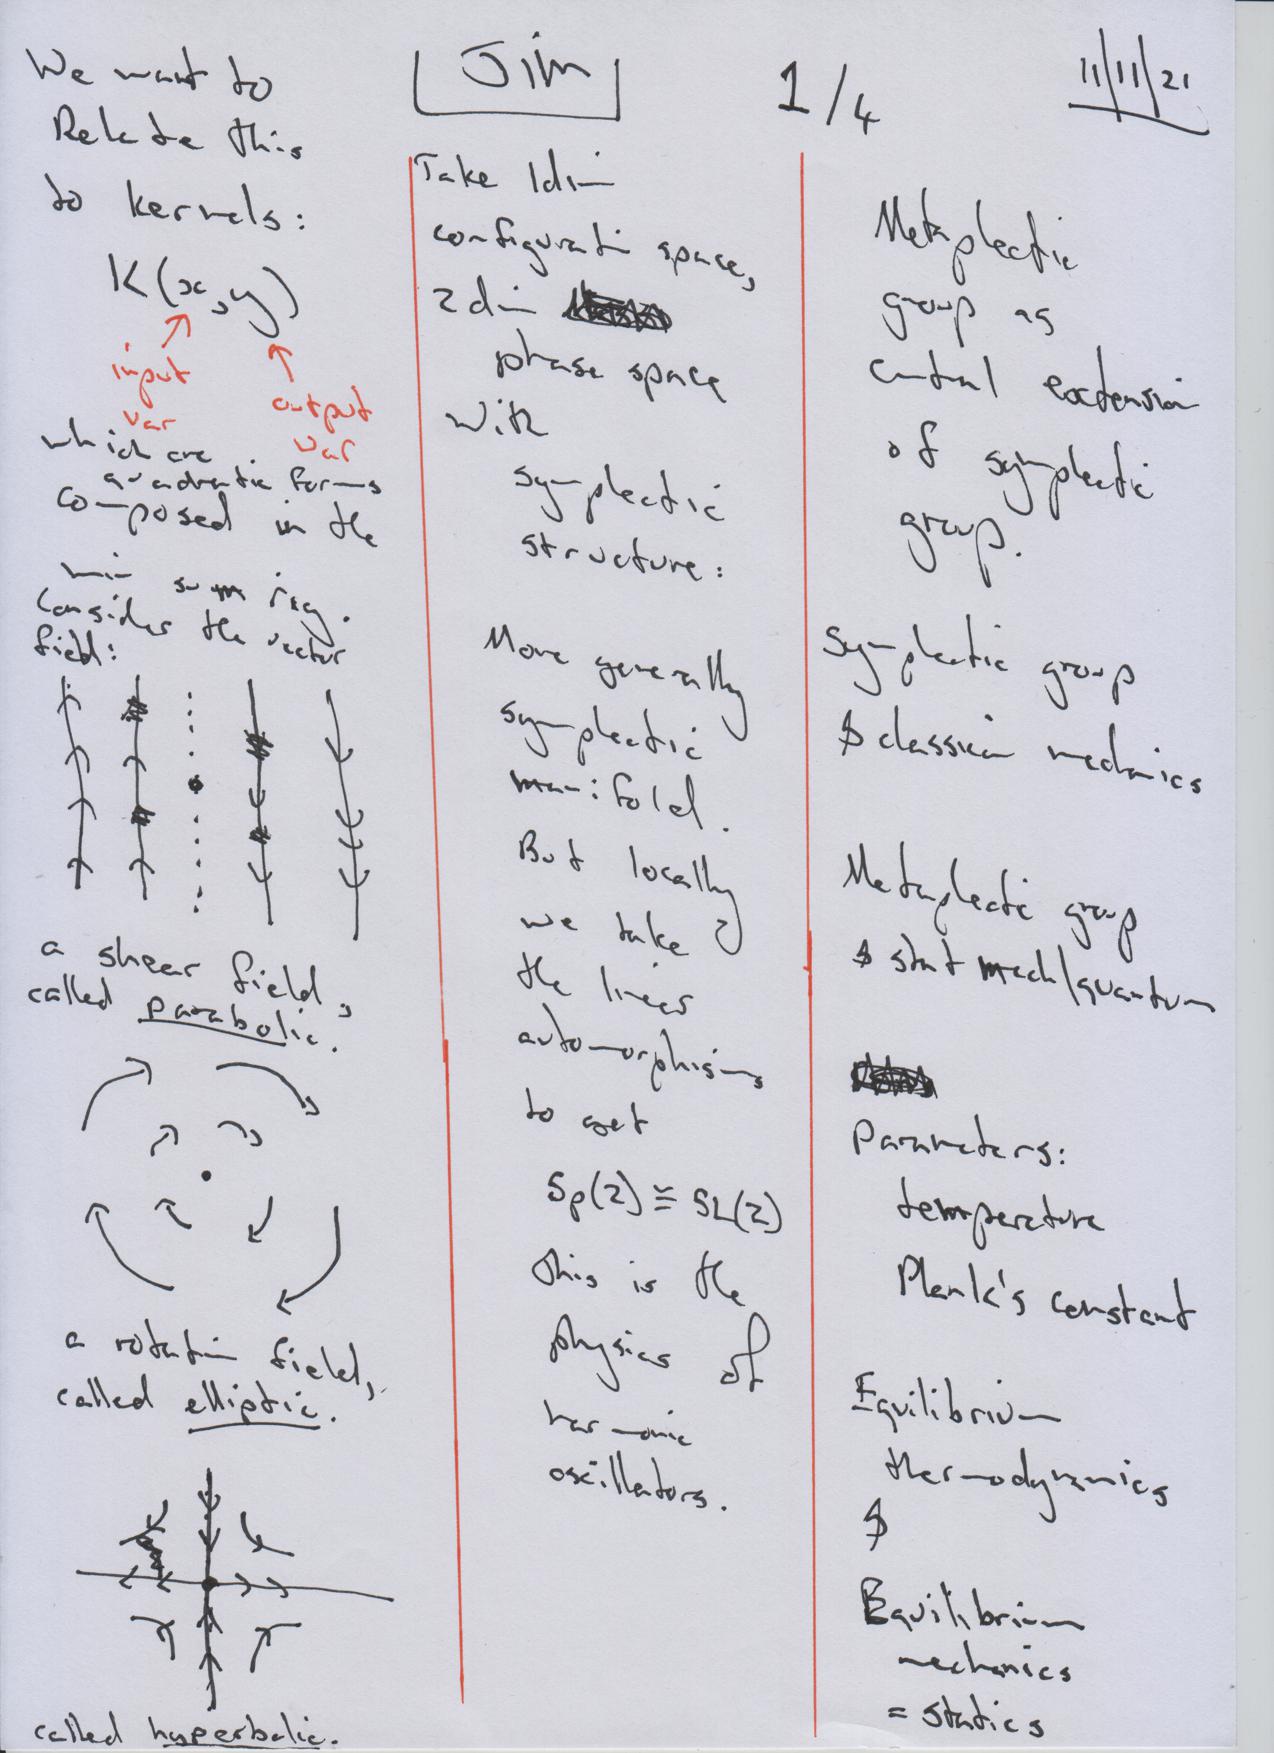 Jim
1/4
11/11/21
We want to
Relate this
to kernels:
K(x,y)
input
var
output
var
which are
quadratic forms
composed in the
min sum rig.
Consider the vector
field:
a shear field,
called parabolic.
a rotatin field,
called elliptic.
called hyperbolic.
Take 1dim
configuratin space,
2dim
phase space
with
symplectic
structure:
More generally
symplectic
manifold.
But locally
we take
the linear
automorphisms
to get
Sp(2) ≅ SL(2)
this is the
physics of
harmonic
oscillators.
Metaplectic
group as
central extension
of symplectic
group.
Symplectic group
$ classical mechanics
Metaplectic group
$ stat mech/quantum
Parameters:
temperature
Plank's constant
Equilibrium
thermodynamics
$
Equilibrium
mechanics
= statics